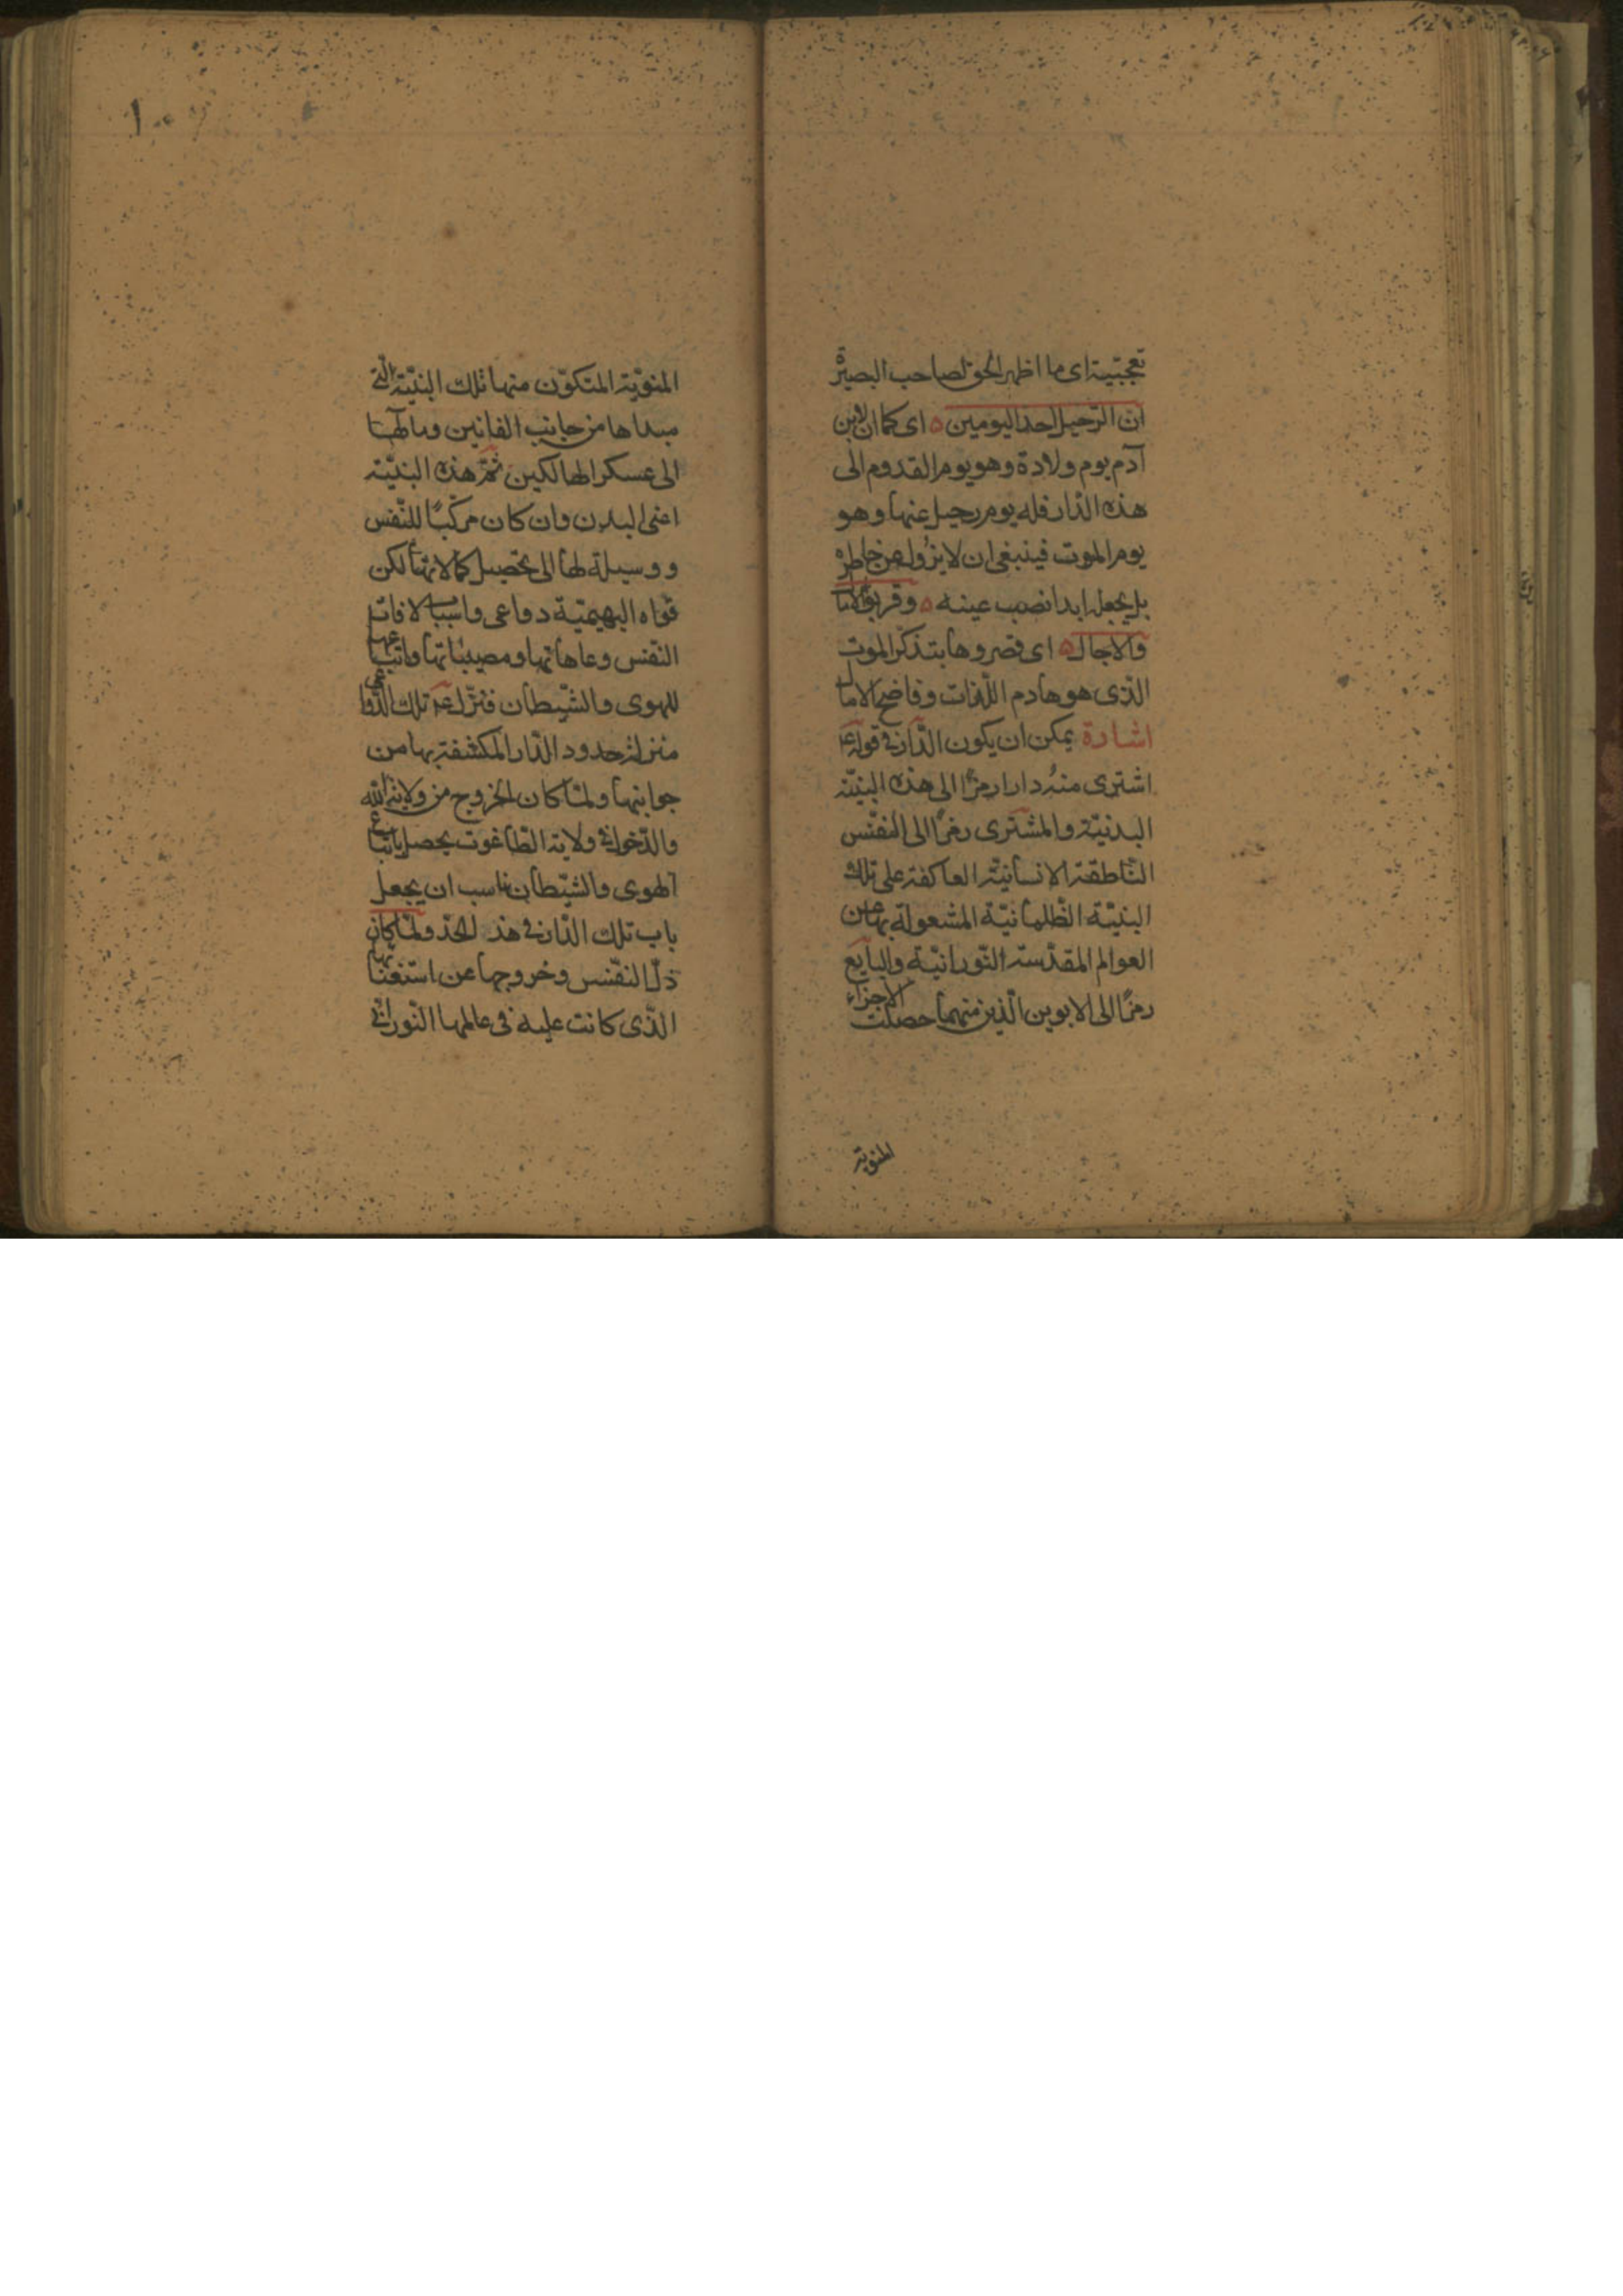 تعجّبيّة اى ما اظهر الحق لصاحب البصيرة
ان الرّحيل احد اليومين ه اى كما ان لابن
آدم يوم ولادة وهو يوم القدوم الى
هذه الدّار فله يوم رحيل عنها وهو
يوم الموت فينبغى ان لا يزول عن خاطره
بل يجعله ابدا نصب عينه ه وقربوا الامال
والاجال ه اى قصروها بتذكّر الموت
الّذى هو هادم اللّذات وفاضح الامال
اشارة يمكن ان يكون الدّار فى قوله ع
اشترى منه دارا رمزًا الى هذه البنيّة
البدنيّة والمشترى رمزًا الى النفس
النّاطقة الانسانيّة العاكفة على تلك
البنيّة الظّلمانيّة المشغولة بها عن
العوالم المقدّسة النّورانيّة والبايع
رمزًا الى الابوين الّذين منهما حصلت الاجزاء
المنويّة
المنويّة المتكوّن منها تلك البنيّة الّتى
مبداها من جانب الفانين ومآلها
الى عسكر الهالكين ثمّ هذه البنيّة
اعنى البدن وان كان مركّبًا للنّفس
ووسيلة لها الى تحصيل كمالاتها لكن
قواه البهيميّة دواعى واسباب لافات
النفس وعاهاتها ومصيباتها واتباعها
للهوى والشّيطان فنزّل ع تلك الدّواعى
منزلة حدود الدّار المكشفة بها من
جوانبها ولمّا كان الخروج من ولاية الله
والدّخول فى ولاية الطّاغوت يحصل باتباع
الهوى والشّيطان ناسب ان يجعل
باب تلك الدّار فى هذ الحدّ ولمّا كان
ذلّ النفس وخروجها عن استغنائها
الّذى كانت عليه فى عالمها النّورانى